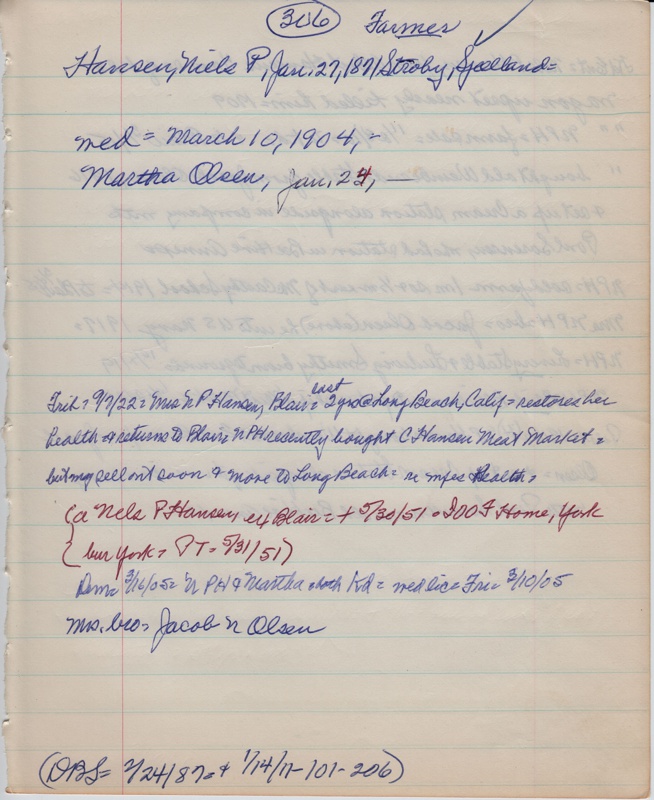 306 Farmer
Hansen, Niels P, Jan. 27, 1871 Stroby, Sjelland=
wed = March 10, 1904, -
Martha Olsen, Jan. 24, —
last
Trib = 9/7/22 = Mrs N P Hansen, Blair = 2 yrs @ Long Beach, Calif = restores her
health & returns to Blair = N PH recently bought C Hansen Meat Market =
but my sell out soon & move to Long Beach = re mfes Health =
(a Nels P Hansen, ex Blair = + 5/30/51 = IOOF Home, York
(bur York = PT = 5/31/51)
Dem = 3/16/05 = N PH & Martha = both Kd = wed lic = Fri = 3/10/05
Mrs. bro = Jacob N Olsen
(DBS = 2/24/87 = & 1/14/11-101-206)